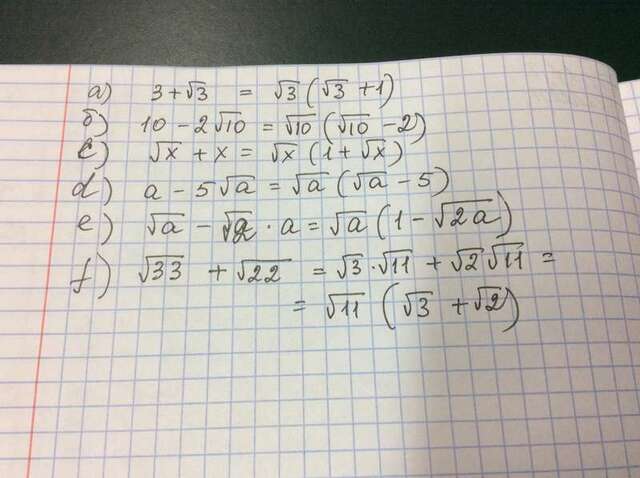 a) 3 + √3 = √3 (√3 + 1)
б) 10 - 2√10 = √10 (√10 - 2)
c) √x + x = √x (1 + √x)
d) a - 5√a = √a (√a - 5)
e) √a - √2 · a = √a (1 - √2a)
f) √33 + √22 = √3 · √11 + √2 √11 =
= √11 (√3 + √2)